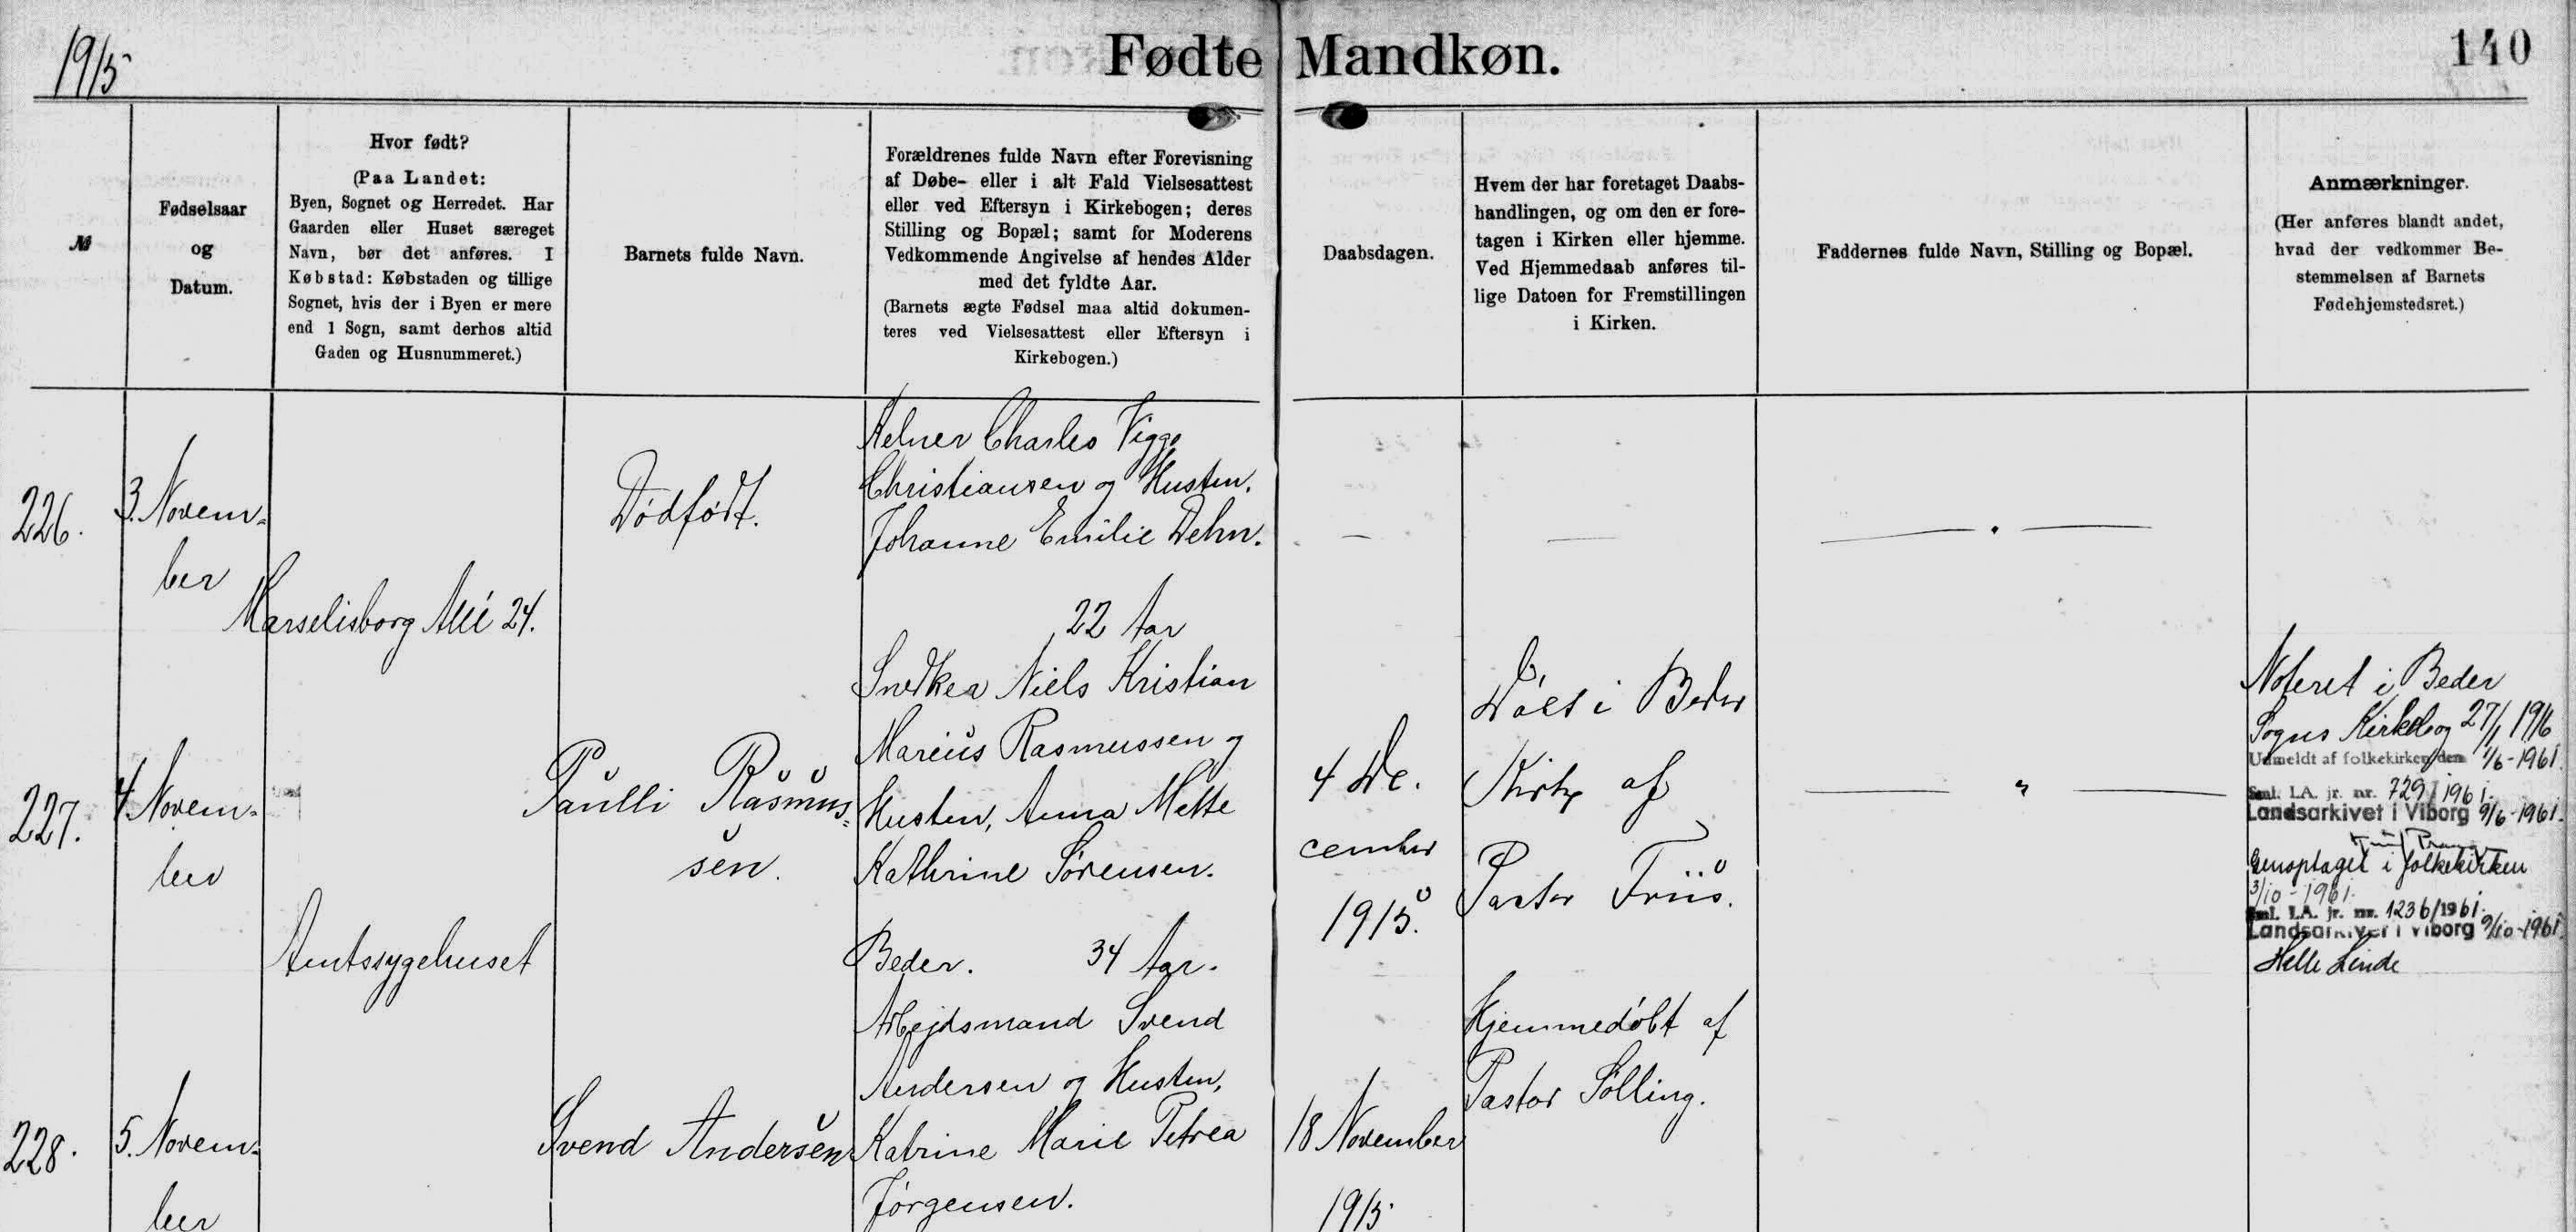 1915
Fødte Mandkøn.
140
№
Fødselsaar
og
Datum.
Hvor født?
(Paa Landet:
Byen, Sognet og Herredet. Har
Gaarden eller Huset særeget
Navn, bør det anføres. I
Købstad: Købstaden og tillige
Sognet, hvis der i Byen er mere
end 1 Sogn, samt derhos altid
Gaden og Husnummeret.)
Barnets fulde Navn.
Forældrenes fulde Navn efter Forevisning
af Døbe- eller i alt Fald Vielsesattest
eller ved Eftersyn i Kirkebogen; deres
Stilling og Bopæl; samt for Moderens
Vedkommende Angivelse af hendes Alder
med det fyldte Aar.
(Barnets ægte Fødsel maa altid dokumen-
teres ved Vielsesattest eller Eftersyn i
Kirkebogen.)
Daabsdagen.
Hvem der har foretaget Daabs-
handlingen, og om den er fore-
tagen i Kirken eller hjemme.
Ved Hjemmedaab anføres til-
lige Datoen for Fremstillingen
i Kirken.
Faddernes fulde Navn, Stilling og Bopæl.
Anmærkninger.
(Her anføres blandt andet,
hvad der vedkommer Be-
stemmelsen af Barnets
Fødehjemstedsret.)
226.
3. Novem-
ber
Marselisborg Allé 24.
Dødfødt.
Kelner Charles Viggo
Christiansen og Hustru,
Johanne Emilie Dehn.
22 Aar
227.
4. Novem-
ber
Amtssygehuset
Paulli Rasmus-
sen.
Snedker Niels Kristian
Marius Rasmussen og
Hustru, Anna Mette
Kathrine Sørensen.
Beder. 34 Aar.
4 De-
cember
1915.
Døbt i Beder
Kirke af
Pastor Friis.
Noteret i Beder
Sogns Kirkebog 27/1 1916
Udmeldt af folkekirken den 1/6-1961.
Sml. LA. jr. nr. 729/1961.
Landsarkivet i Viborg 9/6-1961.
Genoptaget i folkekirken
3/10-1961.
Sml. LA. jr. nr. 1236/1961.
Landsarkivet i Viborg 9/10-1961.
Helle Linde
228.
5. Novem-
ber
Svend Andersen
Arbejdsmand Svend
Andersen og Hustru,
Katrine Marie Petrea
Jørgensen.
18 November
1915.
Hjemmedøbt af
Pastor Sølling.